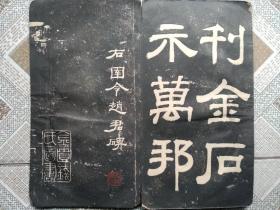 刊金石
示萬邦
石圉令趙君碑